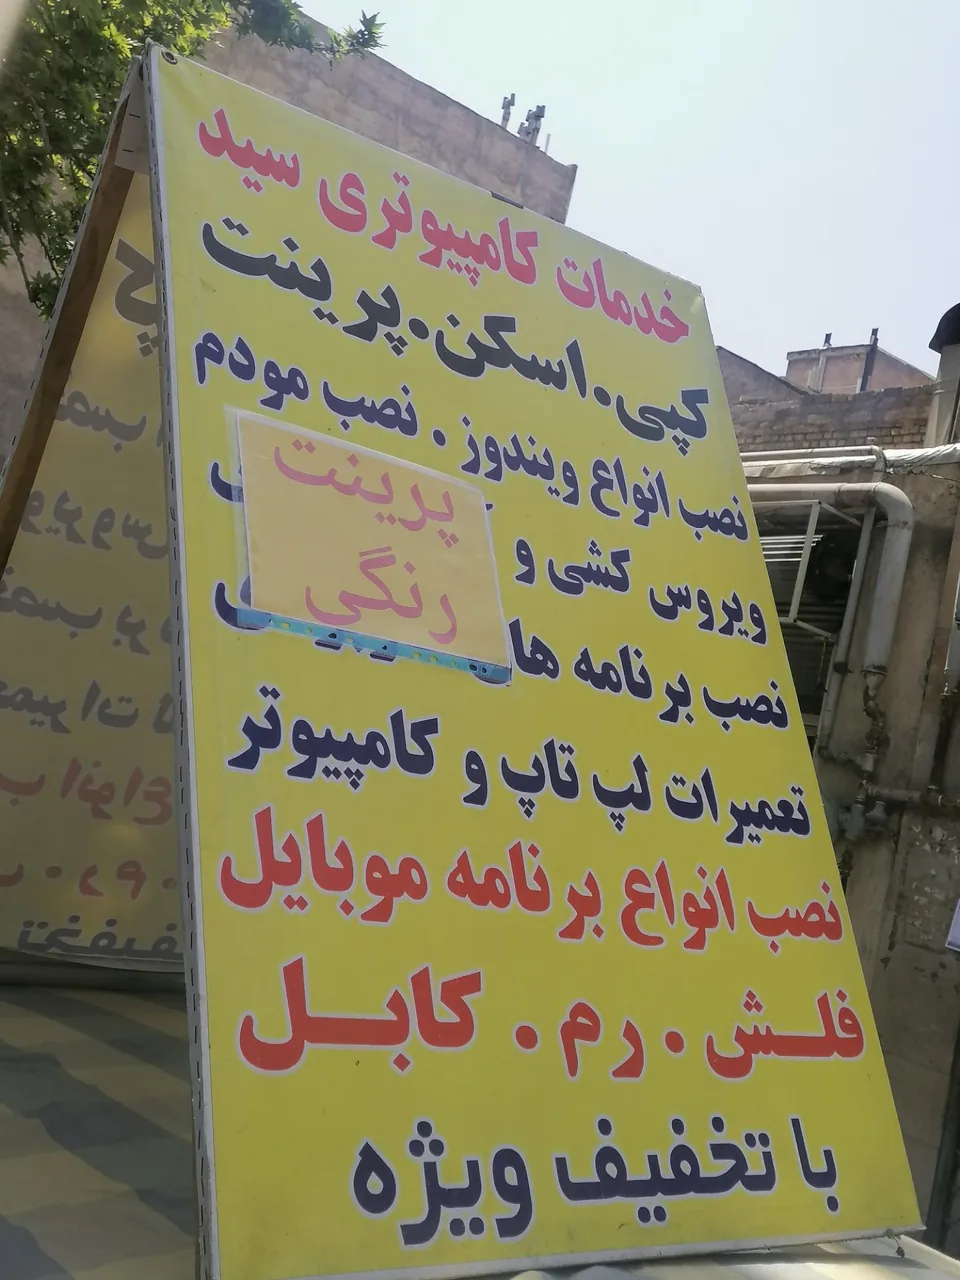 خدمات کامپیوتری سید
کپی . اسکن . پرینت
نصب انواع ویندوز . نصب مودم
ویروس کشی و
نصب برنامه های
پرینت
رنگی
تعمیرات لپ تاپ و کامپیوتر
نصب انواع برنامه موبایل
فلش . رم . کابل
با تخفیف ویژه